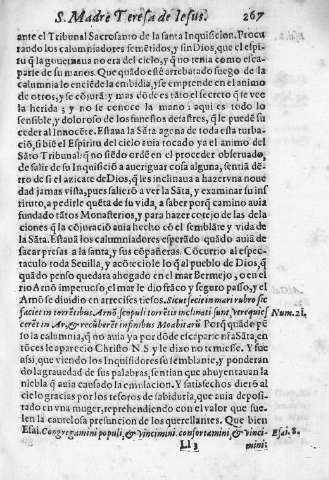 S. Madre Teresa de Iesus. 267
ante el Tribunal Sacrosanto de la santa Inquisicion. Procu
rando los calumniadores semẽtidos, y sin Dios, que el espi-
tu q̃ la gouernaua no era del cielo, y q̃ no tenia como escaparse
de su manos. Que quãdo estè arrebatado fuego de la
calumnia lo enciẽde la enbidia, y se emprende en el animo
de otros, y se cõjurã: y mas dõde es tãto el secreto q̃ se vee
la herida; y no se conece la mano: aqui es todo lo
sensible, y doloroso de los funestos desastres, q̃ le puede su
ceder al innocẽte. Estaua la Sãta agena de toda esta turba-
ciõ, si biẽ el Espiritu del cielo auia tocado ya el animo del
Sãto Tribunal: q̃ no siẽdo ordẽ en el proceder obseruado,
de salir de su Inquisiciõ a aueriguar cosa alguna, sentiã dẽ
tro de si el aricate de Dios, q̃ les inclinaua a hazer vna noue
dad jamas vista, pues saliero a ver la Sãta, y examinar su ins
tituto, a pedirle quẽta de su vida, a saber porq̃ camino auia
fundado tãtos Monasterios, y para hazer cotejo de las dela
ciones q̃ la cõjuraciõ auia hecho cõ el semblãte y vida de
la Sãta. Estauã los calumniadores esperãdo quãdo auiã de
sacar presas a la santa, y sus cõpañeras. Cõcurrio al espec-
taculo toda Seuilla, y acõteciole lo q̃ al pueblo de Dios, q̃
quãdo penso quedara ahogado en el mar Bermejo, o en el
rio Arnõ impetuoso, el mar le dio frãco y seguro passo, y el
Arnõ se diuidio en arrecifes tiesos. Sicut fecit in mari rubro sic
faciet in torrẽtibus Arnõ scopuli torrẽtiũ inclinati sunt, vt requies
cerẽt in Ar, & recũberẽt in finibus Moabitarũ. Porq̃ quãdo pẽ
so la calumnia, q̃ no auia ya por dõde escaparse nr̃a Sãta, en
tõces le aparecio Christo N. S. y le dixo no temiesse. Y fue
assi, que viendo los Inquisidores su sẽblante, y ponderan
do la grauedad de sus palabras, sentian que ahuyentauan la
niebla q̃ auia causado la emulacion. Y satisfechos dierõ al
cielo gracias por los tesoros de sabiduria, que auia deposi-
tado en vna muger, reprehendiendo con el valor que sue-
len la cautelosa presuncion de los querellantes. Que bien
Esai. Congregamini populi, & vincimini, confortamini, & vinci-
Num. 21.
Esai. 8.
Ll 3 mini: